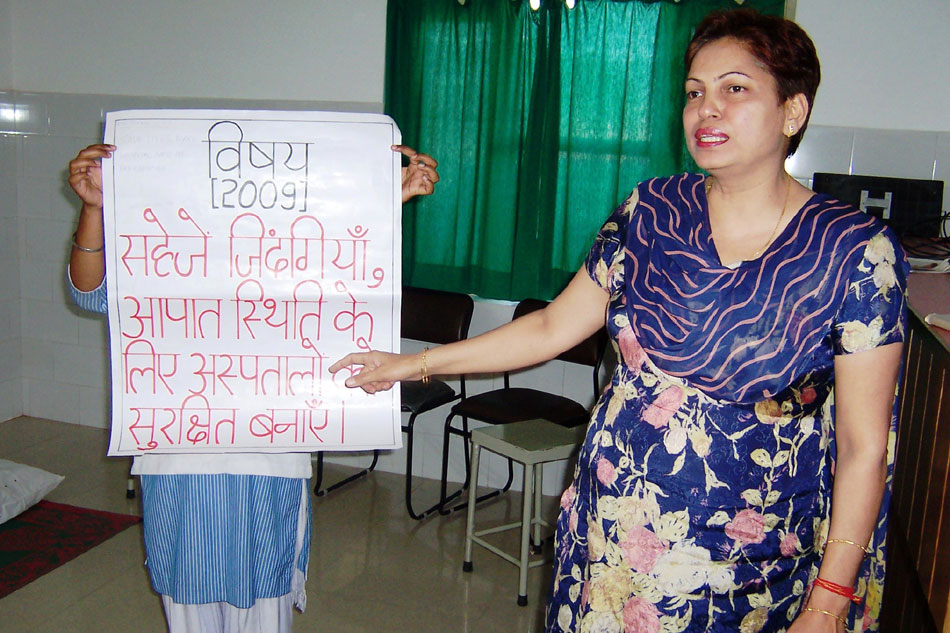 विषय
[2009]
सहेजें जिंदगियाँ,
आपात स्थिति के
लिए अस्पतालो
सुरक्षित बनाएँ।
H